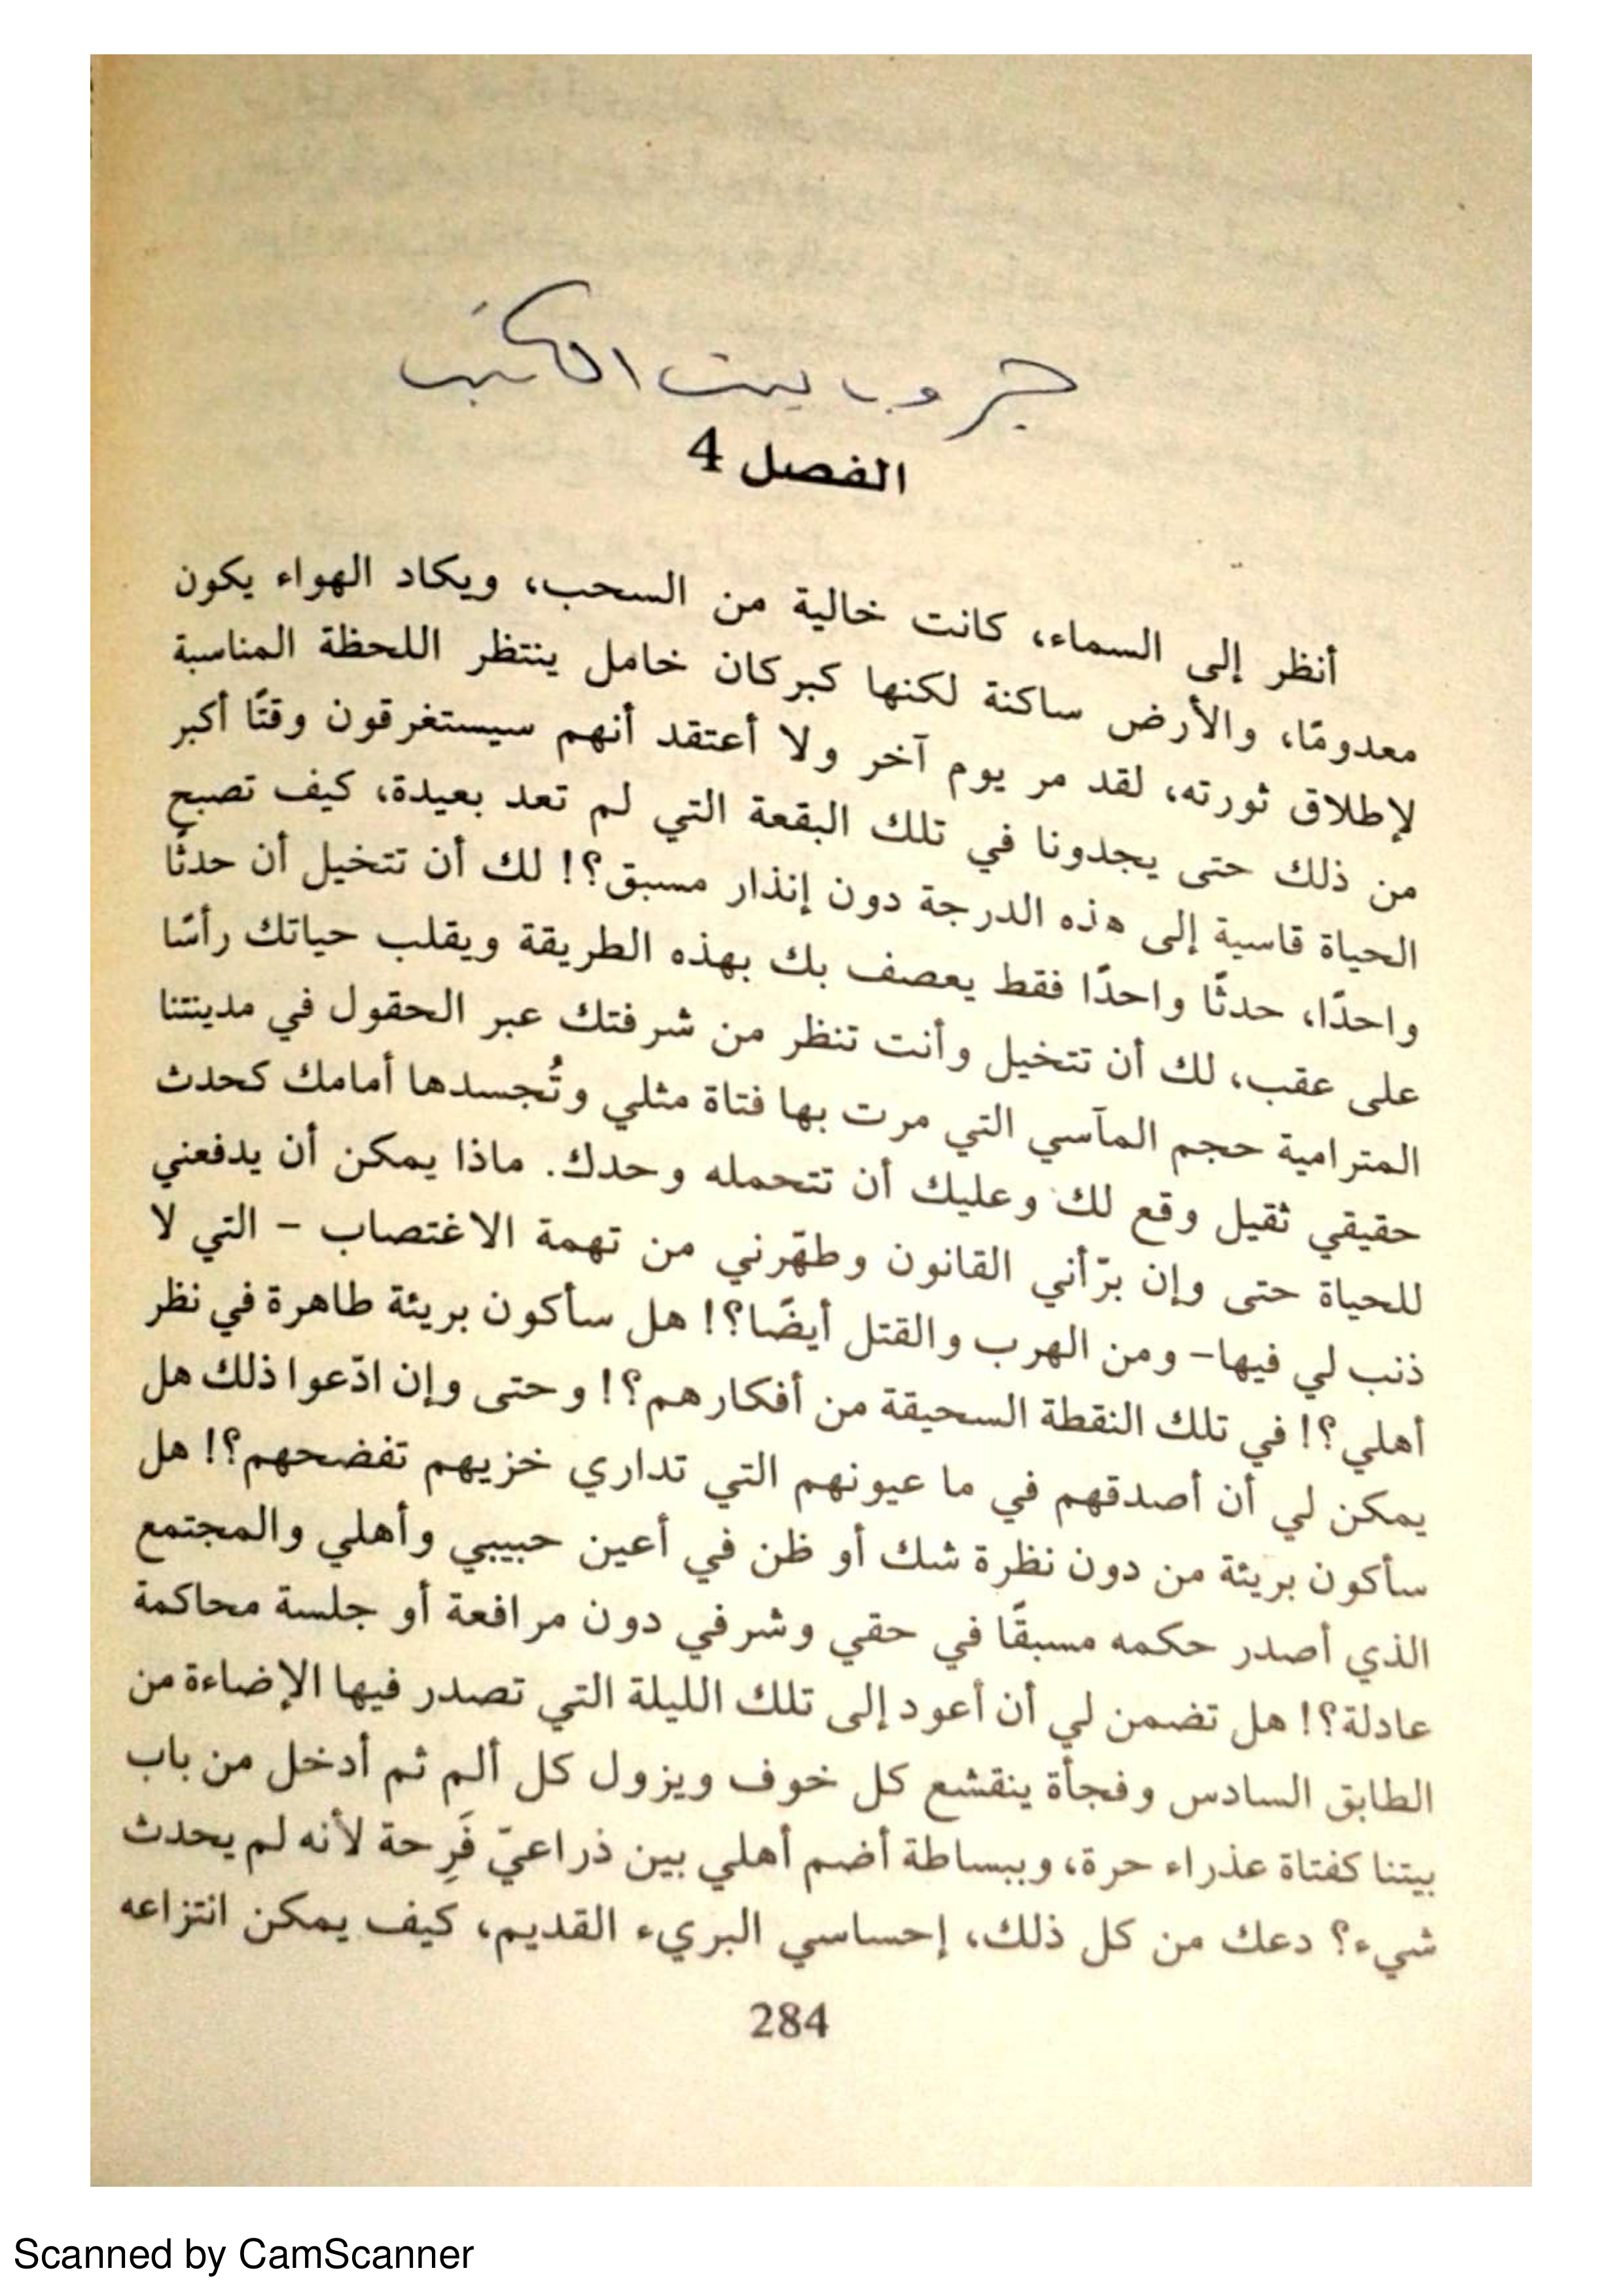 جروب بيت الكتب
الفصل 4
أنظر إلى السماء، كانت خالية من السحب، ويكاد الهواء يكون
معدومًا، والأرض ساكنة لكنها كبركان خامل ينتظر اللحظة المناسبة
لإطلاق ثورته، لقد مر يوم آخر ولا أعتقد أنهم سيستغرقون وقتًا أكبر
من ذلك حتى يجدونا في تلك البقعة التي لم تعد بعيدة، كيف تصبح
الحياة قاسية إلى هذه الدرجة دون إنذار مسبق؟! لك أن تتخيل أن حدثًا
واحدًا، حدثًا واحدًا فقط يعصف بك بهذه الطريقة ويقلب حياتك رأسًا
على عقب، لك أن تتخيل وأنت تنظر من شرفتك عبر الحقول في مدينتنا
المترامية حجم المآسي التي مرت بها فتاة مثلي وتُجسدها أمامك كحدث
حقيقي ثقيل وقع لك وعليك أن تتحمله وحدك. ماذا يمكن أن يدفعني
للحياة حتى وإن برّأني القانون وطهّرني من تهمة الاغتصاب – التي لا
ذنب لي فيها– ومن الهرب والقتل أيضًا؟! هل سأكون بريئة طاهرة في نظر
أهلي؟! في تلك النقطة السحيقة من أفكارهم؟! وحتى وإن ادّعوا ذلك هل
يمكن لي أن أصدقهم في ما عيونهم التي تداري خزيهم تفضحهم؟! هل
سأكون بريئة من دون نظرة شك أو ظن في أعين حبيبي وأهلي والمجتمع
الذي أصدر حكمه مسبقًا في حقي وشرفي دون مرافعة أو جلسة محاكمة
عادلة؟! هل تضمن لي أن أعود إلى تلك الليلة التي تصدر فيها الإضاءة من
الطابق السادس وفجأة ينقشع كل خوف ويزول كل ألم ثم أدخل من باب
بيتنا كفتاة عذراء حرة، وببساطة أضم أهلي بين ذراعيّ فَرِحة لأنه لم يحدث
شيء؟ دعك من كل ذلك، إحساسي البريء القديم، كيف يمكن انتزاعه
284
Scanned by CamScanner